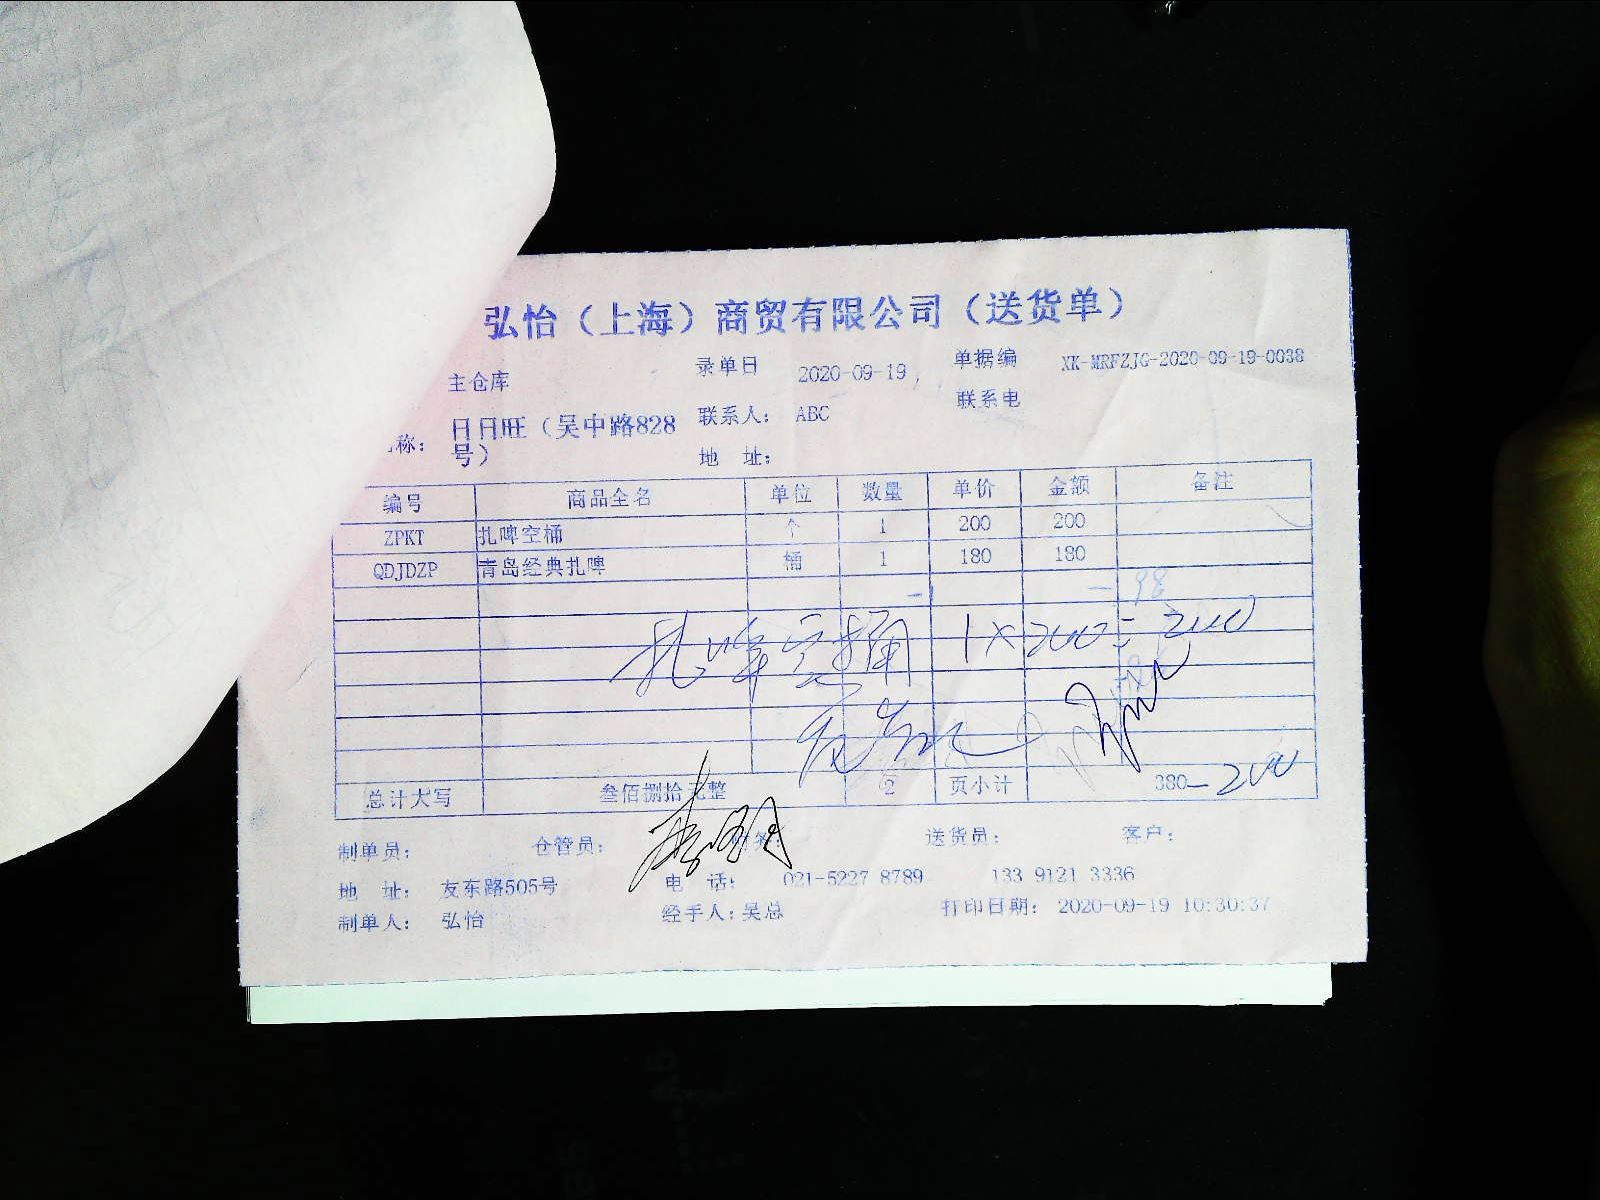 弘怡（上海）商贸有限公司（送货单）
主仓库 录单日 2020-09-19, 单据编 XK-MRFZJG-2020-09-19-0038
称： 日日旺（吴中路828号） 联系人： ABC 联系电
地 址：
编号 商品全名 单位 数量 单价 金额 备注
ZPKT 扎啤空桶 个 1 200 200
QDJDZP 青岛经典扎啤 桶 1 180 180
扎啤空桶 1×200=200
总计大写 叁佰捌拾元整 2 页小计 380-200
制单员： 仓管员： 送货员： 客户：
地 址： 友东路505号 电 话： 021-5227 8789 133 9121 3336
制单人： 弘怡 经手人：吴总 打印日期： 2020-09-19 10:30:37